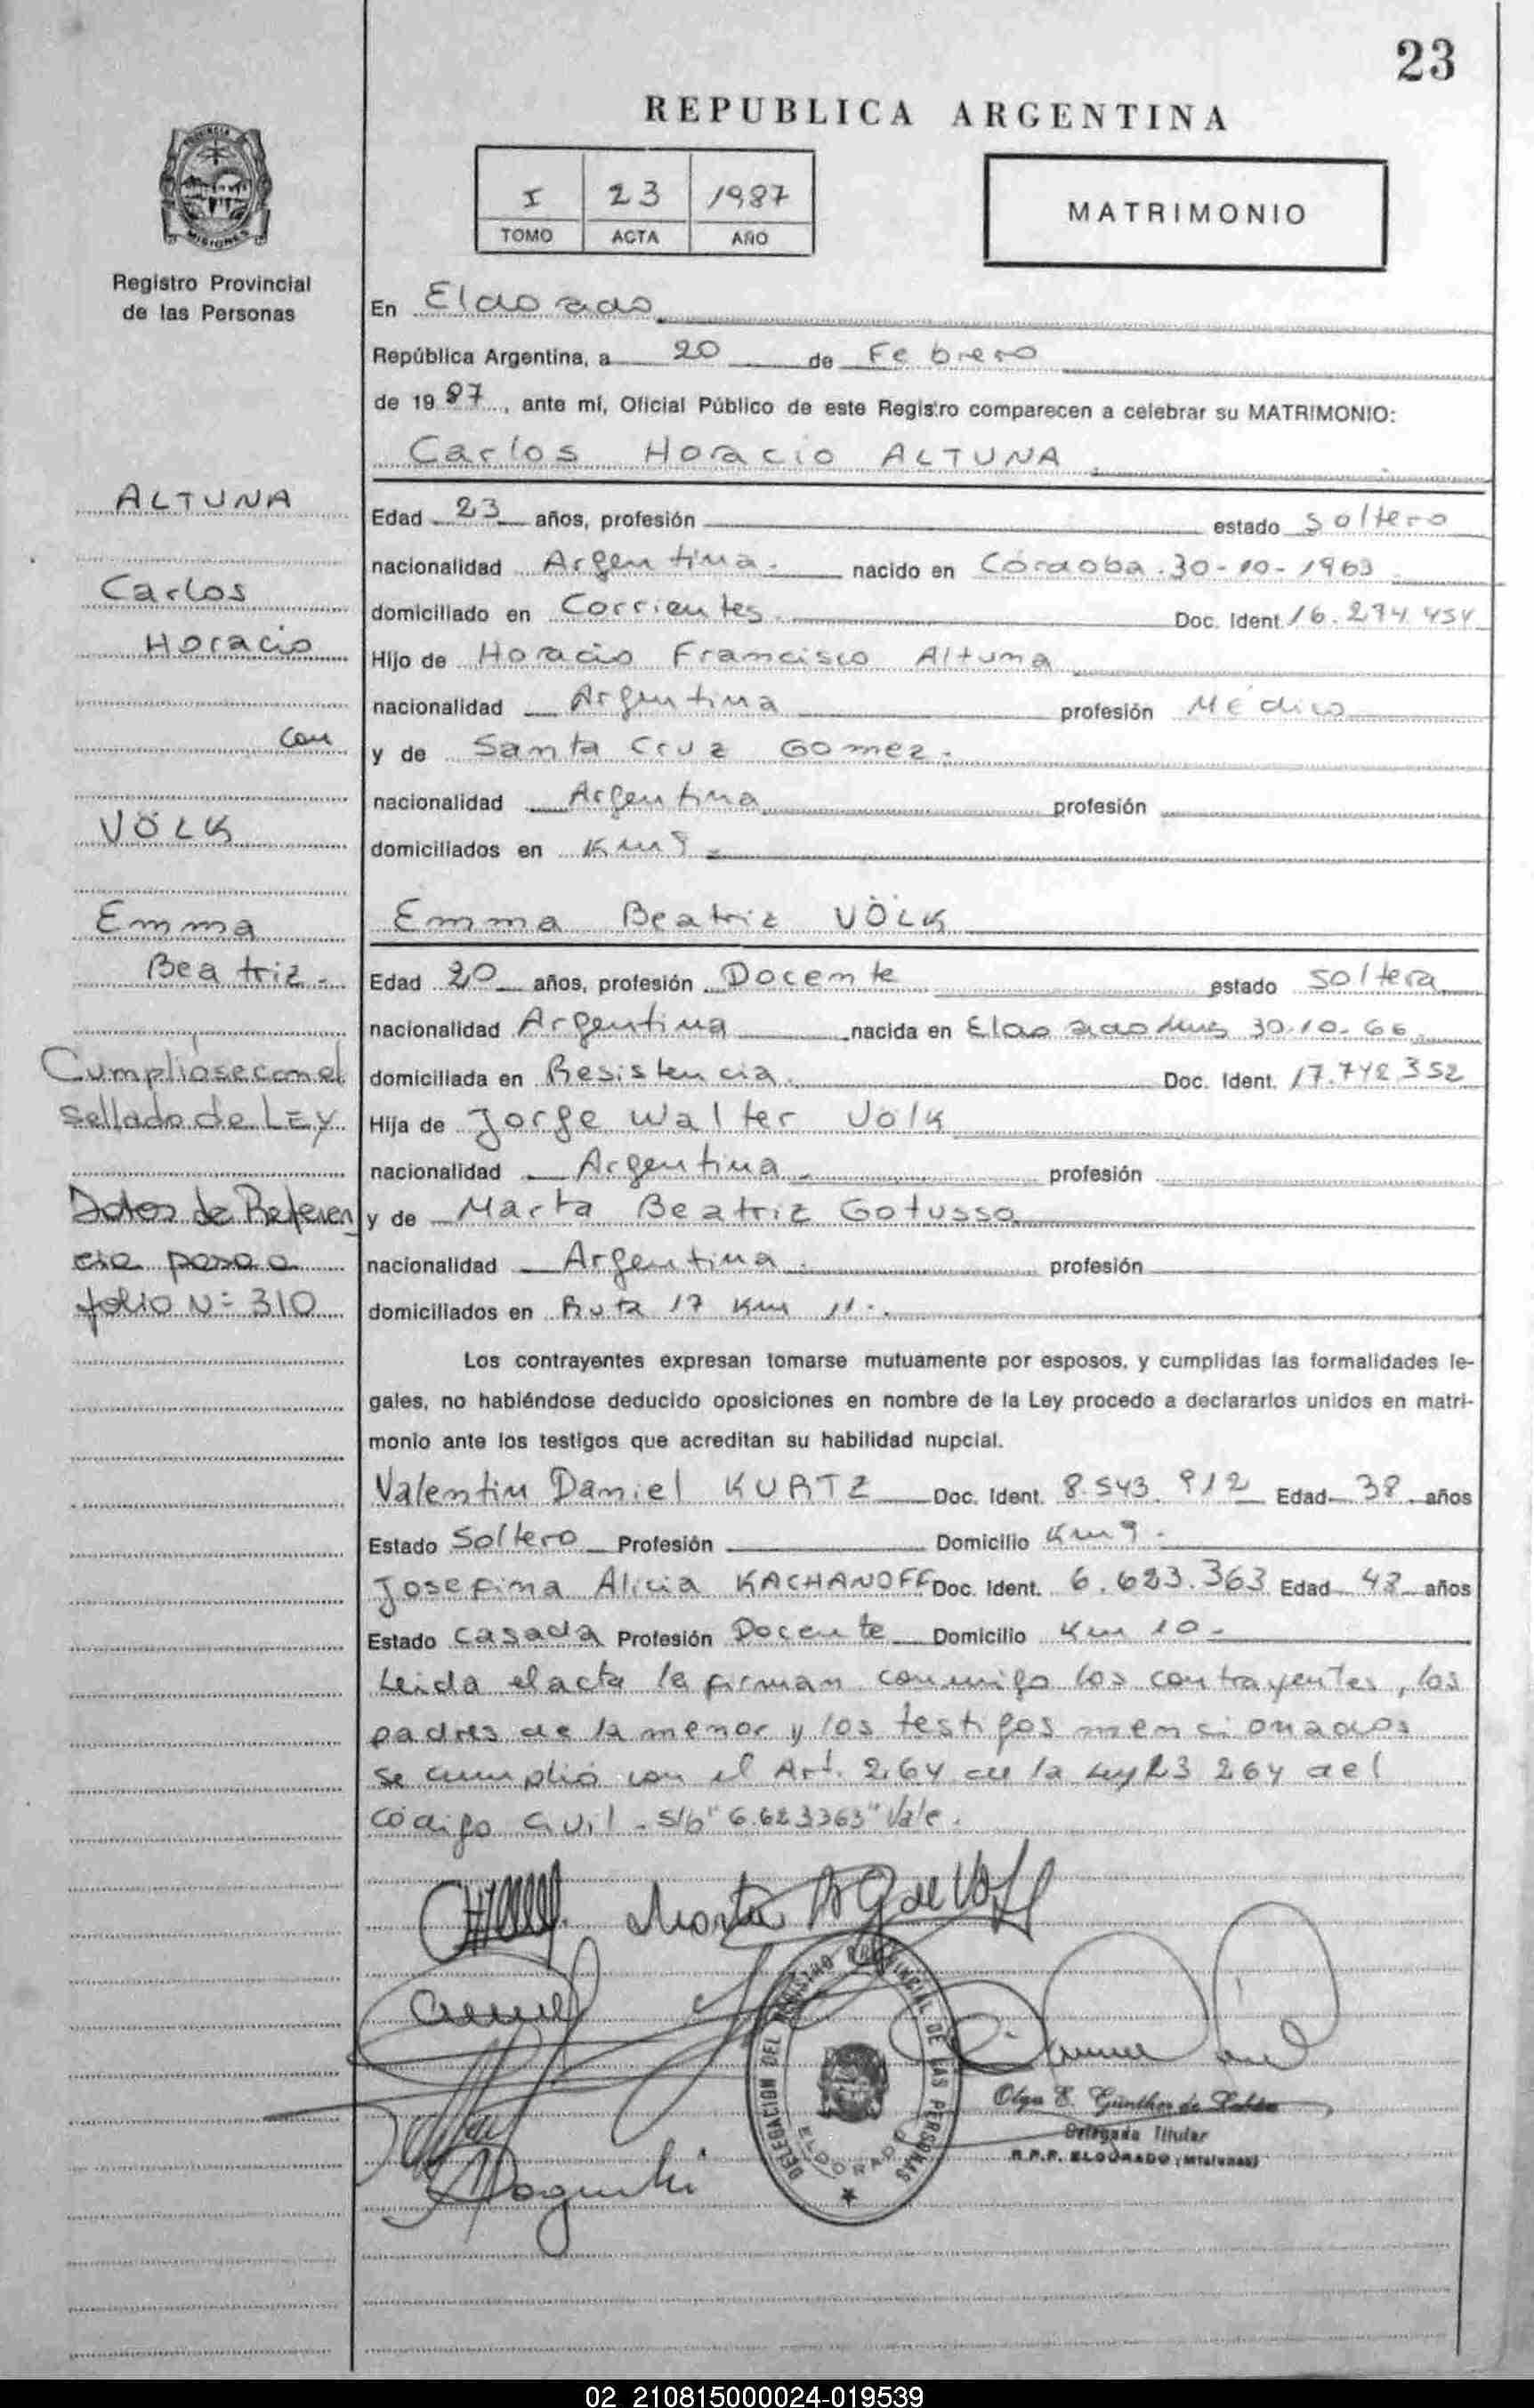 23
REPUBLICA ARGENTINA
I 23 1987
TOMO ACTA AÑO
MATRIMONIO
PROVINCIA
MISIONES
Registro Provincial
de las Personas
En Eldorado
República Argentina, a 20 de Febrero
de 1987, ante mí, Oficial Público de este Registro comparecen a celebrar su MATRIMONIO:
Carlos Horacio ALTUNA
ALTUNA
Carlos
Horacio
con
VÖLK
Emma
Beatriz.-
Cumpliose con el
sellado de LEY
Datos de Referen
cia pasa a
folio Nº 310
Edad 23 años, profesión estado soltero
nacionalidad Argentina. nacido en Córdoba. 30-10-1963
domiciliado en Corrientes. Doc. Ident. 16.274.454
Hijo de Horacio Francisco Altuna
nacionalidad Argentina profesión Médico
y de Santa Cruz Gomez.
nacionalidad Argentina profesión
domiciliados en Km 9
Emma Beatriz VÖLK
Edad 20 años, profesión Docente estado soltera
nacionalidad Argentina nacida en Eldorado Mnes 30-10-66
domiciliada en Resistencia. Doc. Ident. 17.742.352
Hija de Jorge Walter Völk
nacionalidad Argentina profesión
y de Marta Beatriz Gotusso
nacionalidad Argentina. profesión
domiciliados en Ruta 17 Km 11.
Los contrayentes expresan tomarse mutuamente por esposos, y cumplidas las formalidades le-
gales, no habiéndose deducido oposiciones en nombre de la Ley procedo a declararlos unidos en matri-
monio ante los testigos que acreditan su habilidad nupcial.
Valentin Daniel KURTZ Doc. Ident. 8.543.912 Edad 38 años
Estado Soltero Profesión Domicilio Km 9.
Josefina Alicia KACHANOFF Doc. Ident. 6.623.363 Edad 42 años
Estado Casada Profesión Docente Domicilio Km 10.-
Leida el acta la firman conmigo los contrayentes, los
padres de la menor y los testigos mencionados
se cumplió con el Art. 264 de la Ley 23 264 del
código Civil - S/b "6.623363" Vale.
DELEGACION DEL REGISTRO PROVINCIAL DE LAS PERSONAS
ELDORADO
Olga E. Günther de
Delegada Titular
R.P.P. ELDORADO (Misiones)
02_210815000024-019539